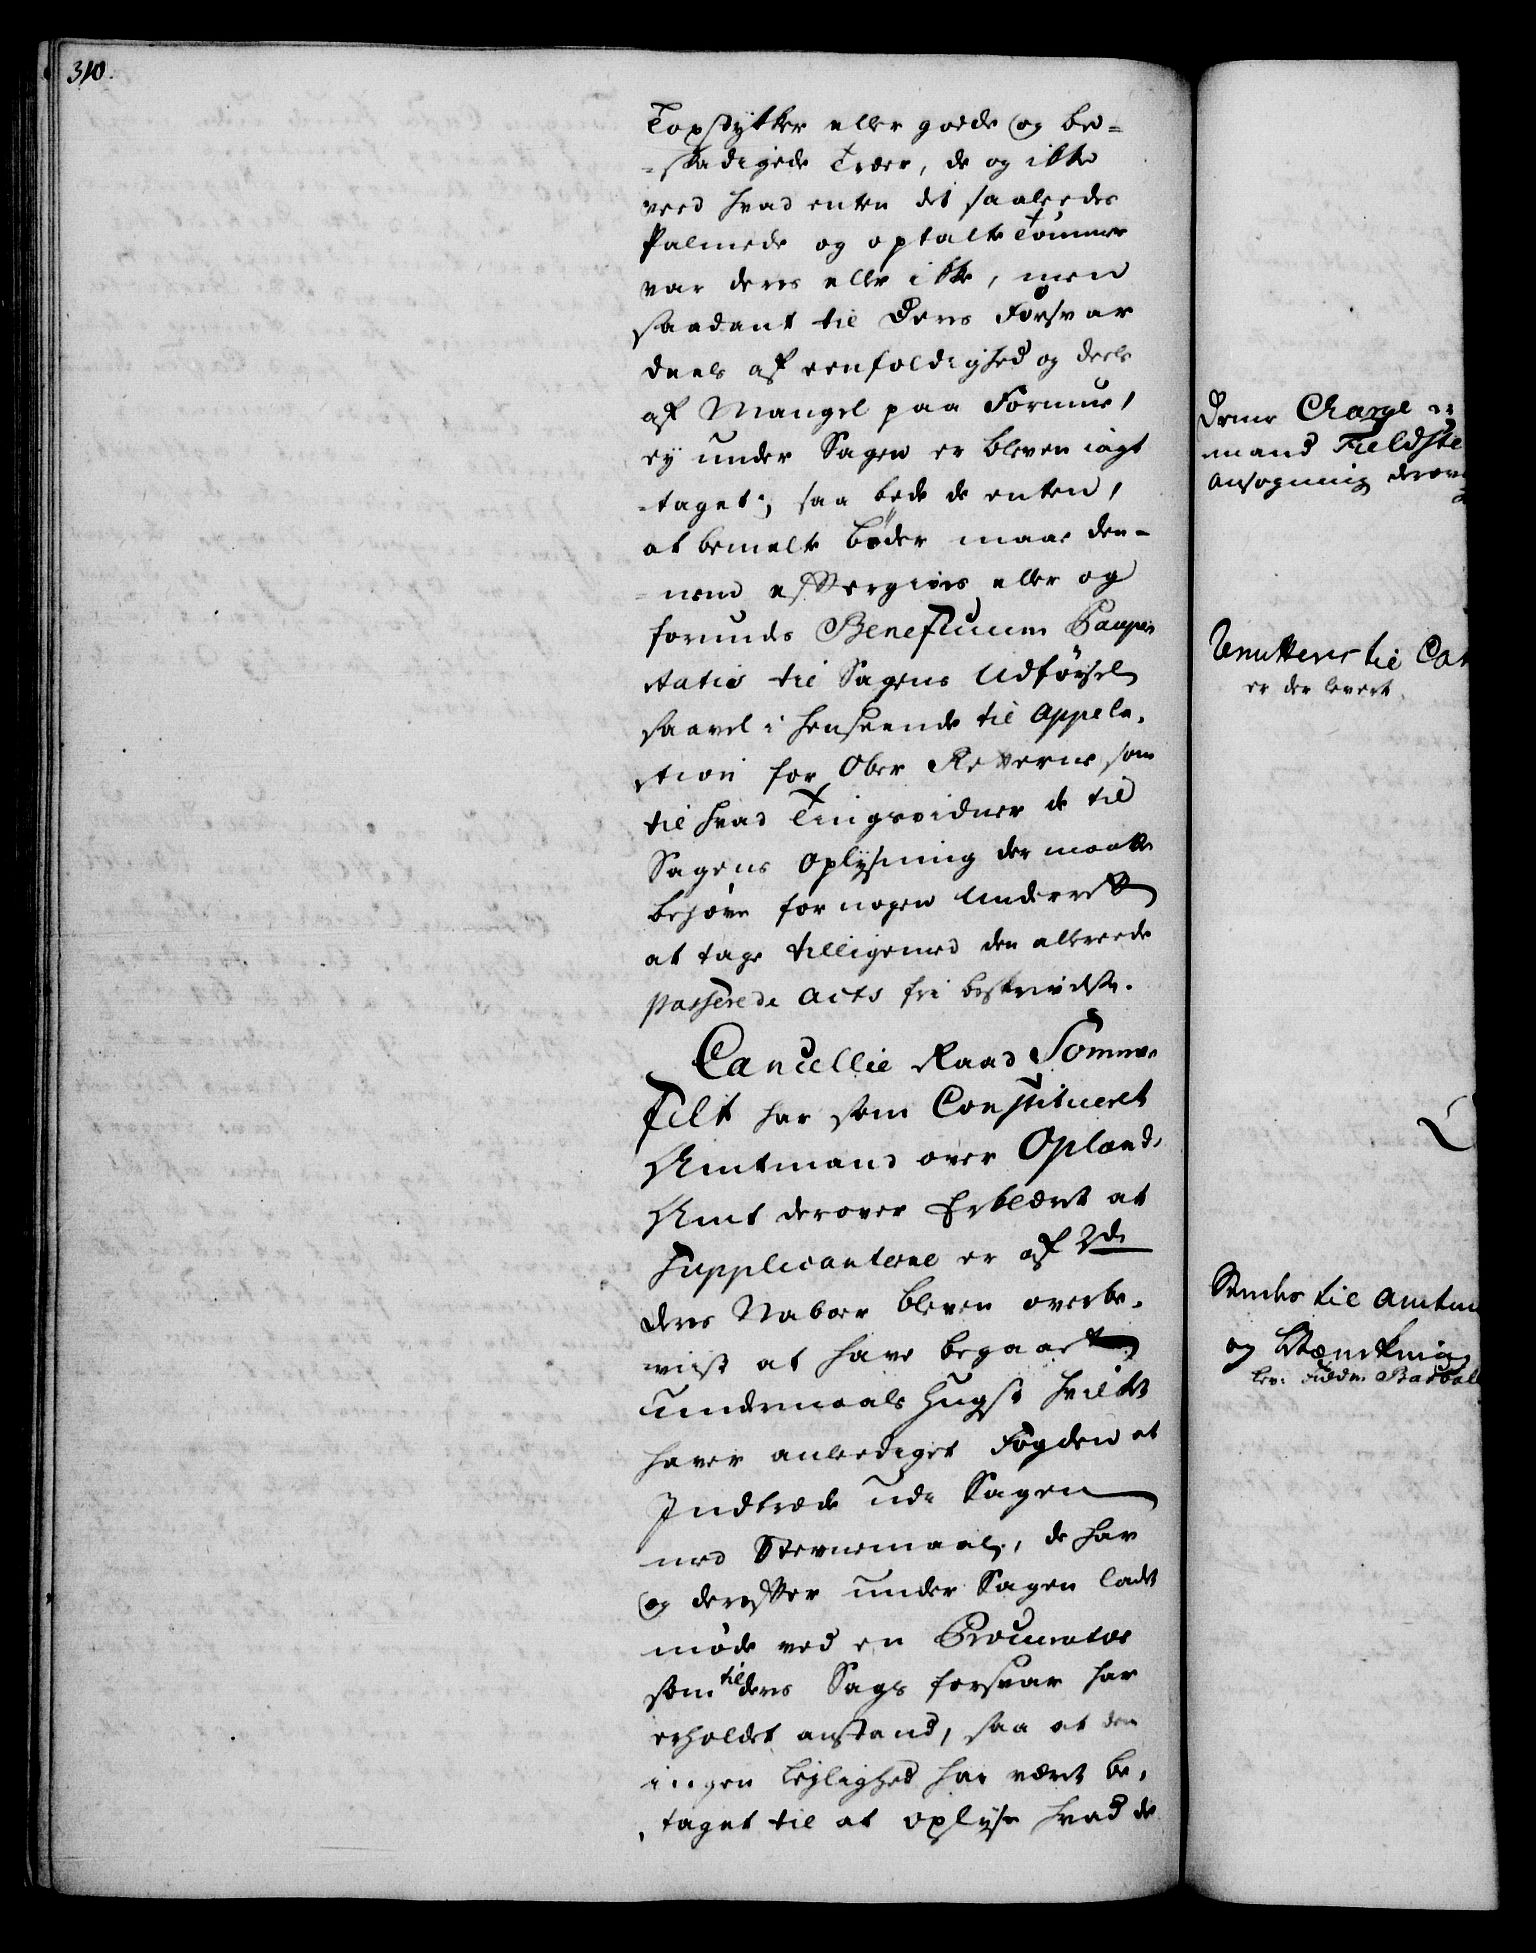 310.
Topstykker eller gode og be-
-skadigede Træer, de og ikke
veed hvad enten det saaledes
Palmede og optalte Tømmer
var deres eller ikke, men
saadant til Deres Forsvar
deels af eenfoldighed og deels
af Mangel paa Formue,
ey under Sagen er bleven iagt
-taget; saa bede de enten,
at bemelte bøder maae den-
-nem eftergives eller og
forunds Beneficium Pauper
tatis til Sagens Udførsel
saavel i henseende til Appela-
tion for Ober Retterne som
til hvad Tingsvidner de til
Sagens Oplysning der maatte
behøve for nogen Underrett
at tage tilligemed den allereede
passerede Acts fri beskrivelse.
Cancellie Raad Sommer
Felt har som Constitueret
Amtmand over Oplands
Amt derover Erklæret at
Supplicanterne er af 2de
deres Naboer bleven overbe-
viist at have begaaet
undermaals Hugst hvilket
haver anlediget Fogden at
Indtræde udi Sagen
med Stevnemaal, de har
og derefter under Sagen ladet
møde ved en Procurator
som til deres Sags forsvar har
erholdet anstand, saa at dem
ingen Lejlighed har været be-
taget til at oplyse hvad de
Denne Charge er
mand Fieldste
Ansøgning derov
Remitteres til Cat
er der levert.
Sendes til Amtm
og Betænkning